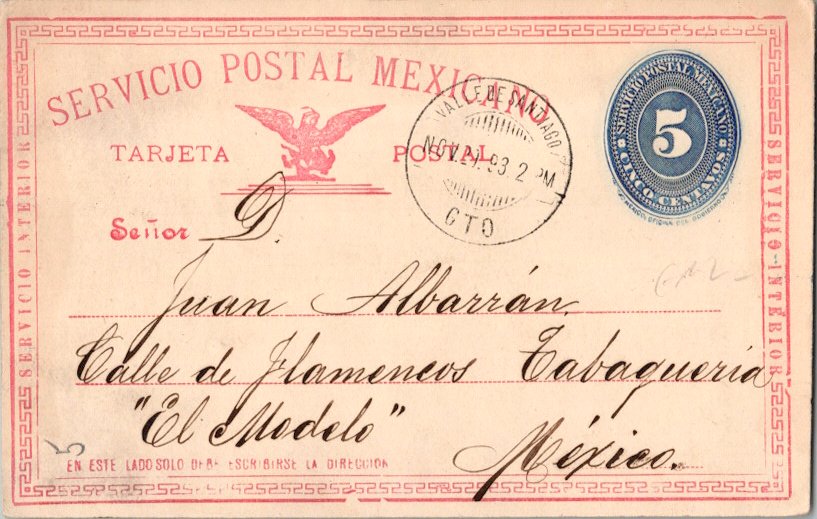 SERVICIO POSTAL MEXICANO
TARJETA POSTAL
VALLE DE SANTIAGO
NOV. 93. 2 PM
GTO
SERVICIO POSTAL MEXICANO
5
CINCO CENTAVOS
Señor D.
Juan Albarrán.
Calle de Flamencos Tabaquería
"El Modelo"
México.
EN ESTE LADO SOLO DEBE ESCRIBIRSE LA DIRECCION
SERVICIO INTERIOR
SERVICIO INTERIOR
5